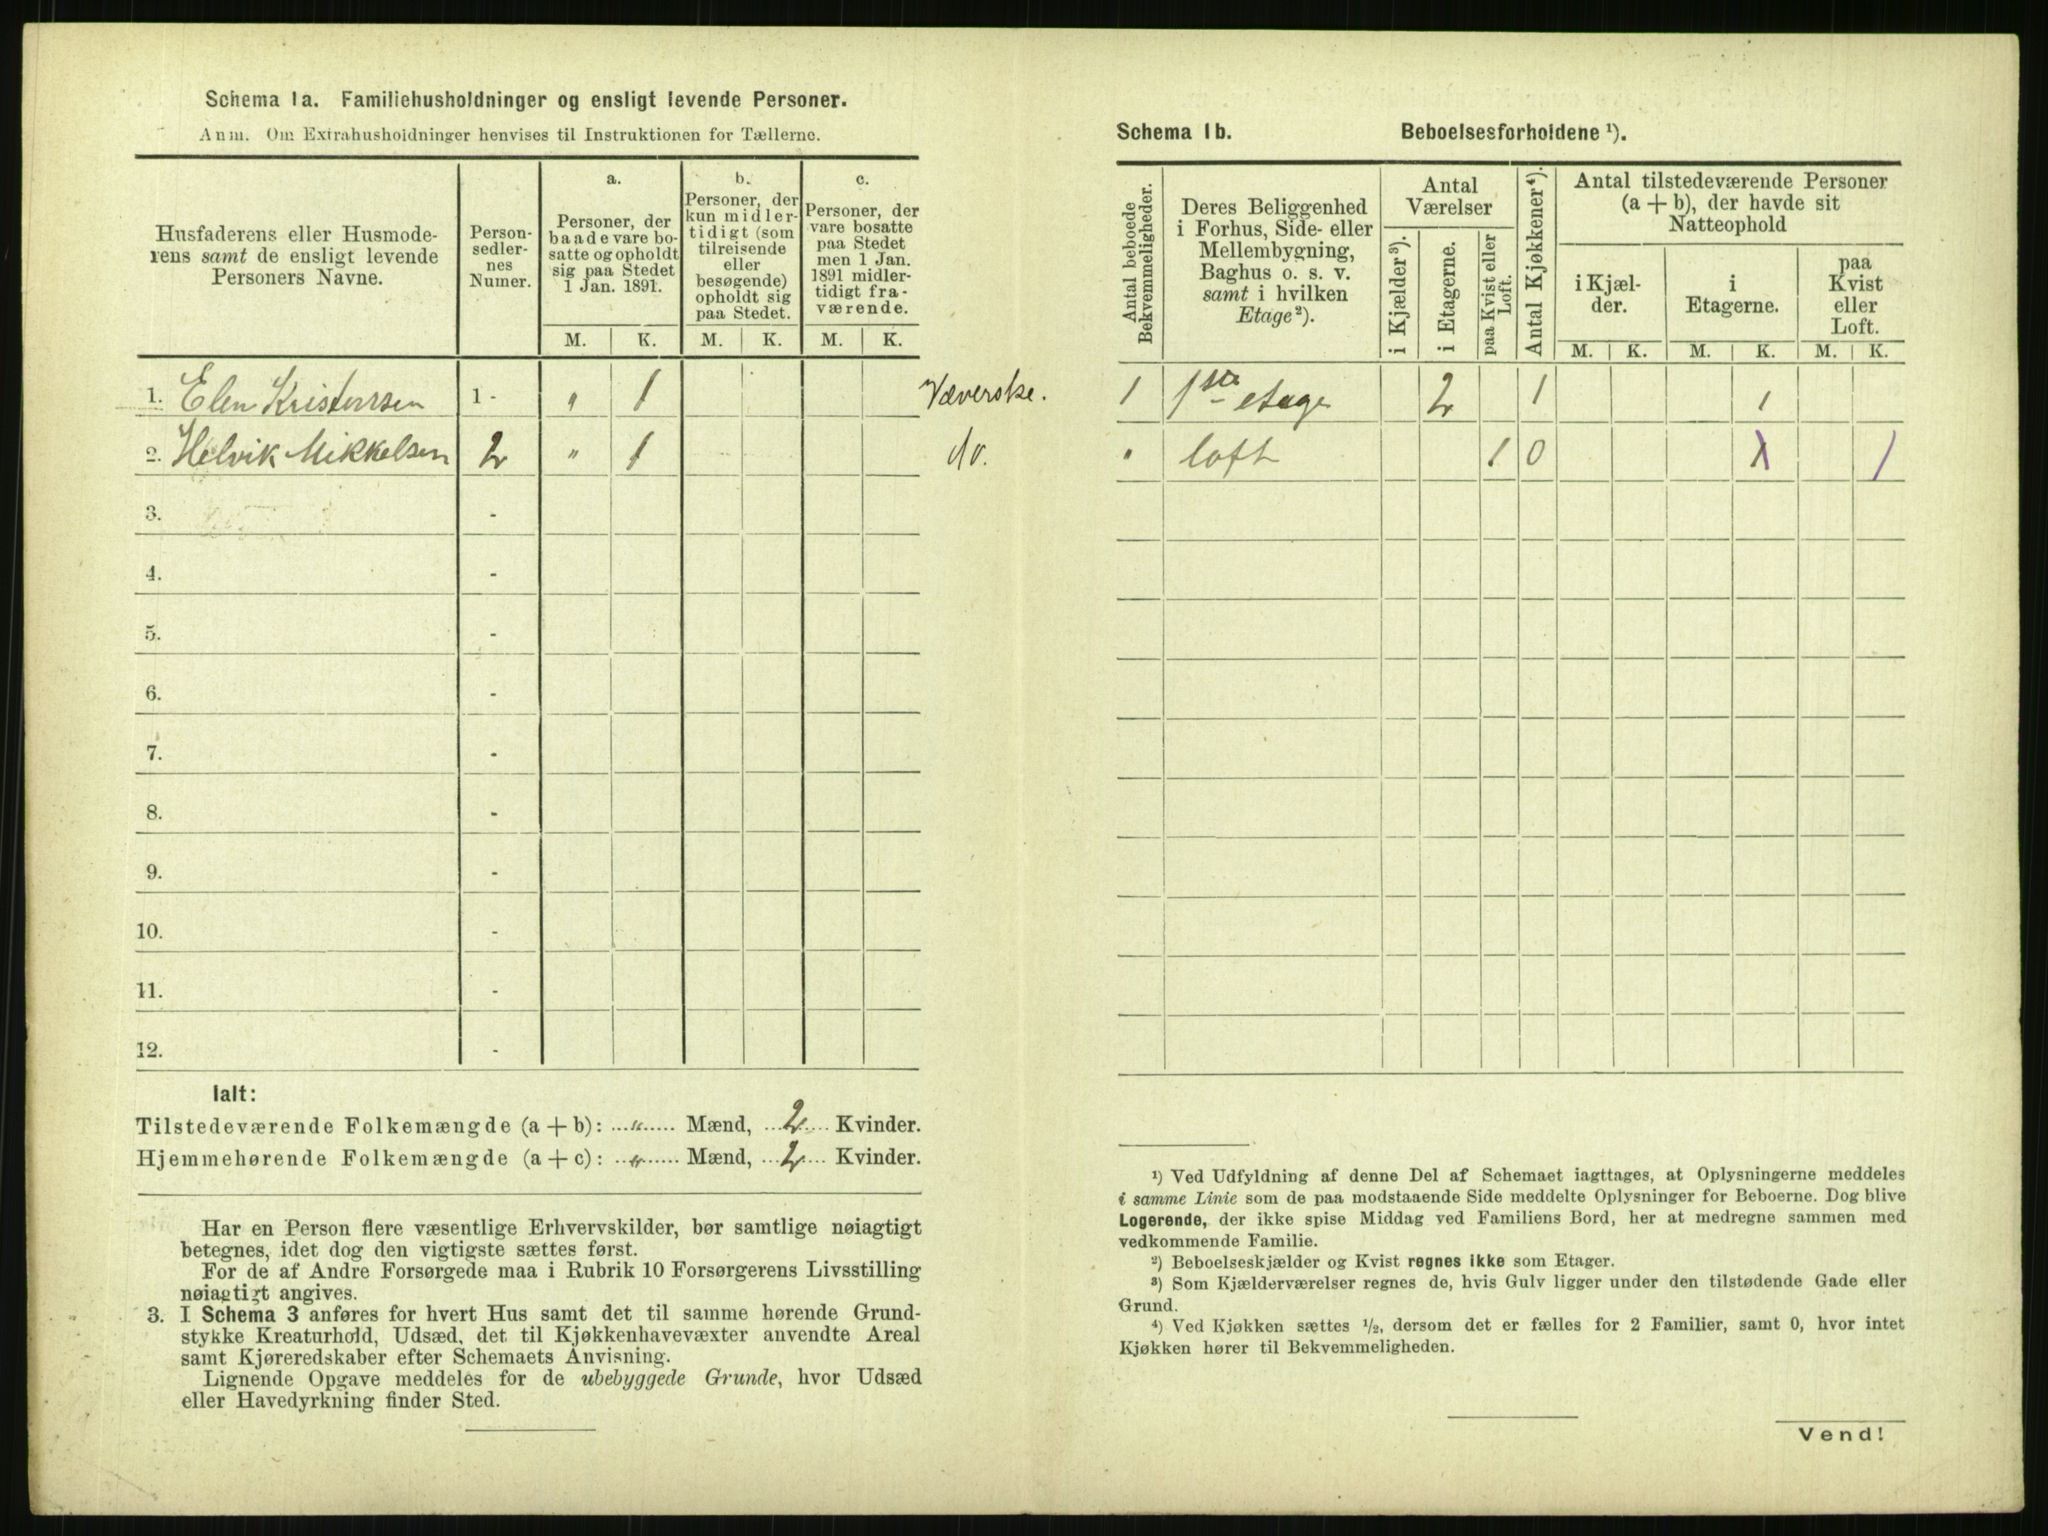 Schema 1a. Familiehusholdninger og ensligt levende Personer.
Anm. Om Extrahusholdninger henvises til Instruktionen for Tællerne.
Husfaderens eller Husmode-
rens samt de ensligt levende
Personers Navne.
Person-
sedler-
nes
Numer.
a.
Personer, der
baade vare bo-
satte og opholdt
sig paa Stedet
1 Jan. 1891.
b.
Personer, der
kun midler-
tidigt (som
tilreisende
eller
besøgende)
opholdt sig
paa Stedet.
c.
Personer, der
vare bosatte
paa Stedet
men 1 Jan.
1891 midler-
tidigt fra-
værende.
M. K. M. K. M. K.
1. Elen Kristenssen 1 - " 1 Væverske.
2. Helvik Mikkelsen 2 " 1 do.
3. -
4. -
5. -
6. -
7. -
8. -
9. -
10. -
11. -
12. -
Ialt:
Tilstedeværende Folkemængde (a + b): " Mænd, 2 Kvinder.
Hjemmehørende Folkemængde (a + c): " Mænd, 2 Kvinder.
Har en Person flere væsentlige Erhvervskilder, bør samtlige nøiagtigt
betegnes, idet dog den vigtigste sættes først.
For de af Andre Forsørgede maa i Rubrik 10 Forsørgerens Livsstilling
nøiagtigt angives.
3. I Schema 3 anføres for hvert Hus samt det til samme hørende Grund-
stykke Kreaturhold, Udsæd, det til Kjøkkenhavevæxter anvendte Areal
samt Kjøreredskaber efter Schemaets Anvisning.
Lignende Opgave meddeles for de ubebyggede Grunde, hvor Udsæd
eller Havedyrkning finder Sted.
Schema 1b. Beboelsesforholdene ¹).
Antal beboede
Bekvemmeligheder.
Deres Beliggenhed
i Forhus, Side- eller
Mellembygning,
Baghus o. s. v.
samt i hvilken
Etage ²).
Antal
Værelser
i Kjælder ³).
i Etagerne.
paa Kvist eller
Loft.
Antal Kjøkkener ⁴).
Antal tilstedeværende Personer
(a + b), der havde sit
Natteophold
i Kjæl-
der.
i
Etagerne.
paa
Kvist
eller
Loft.
M. K. M. K. M. K.
1 1ste etage 2 1 1
" loft 1 0 1 1
¹) Ved Udfyldning af denne Del af Schemaet iagttages, at Oplysningerne meddeles
i samme Linie som de paa modstaaende Side meddelte Oplysninger for Beboerne. Dog blive
Logerende, der ikke spise Middag ved Familiens Bord, her at medregne sammen med
vedkommende Familie.
²) Beboelseskjælder og Kvist regnes ikke som Etager.
³) Som Kjælderværelser regnes de, hvis Gulv ligger under den tilstødende Gade eller
Grund.
⁴) Ved Kjøkken sættes ½, dersom det er fælles for 2 Familier, samt 0, hvor intet
Kjøkken hører til Bekvemmeligheden.
Vend!